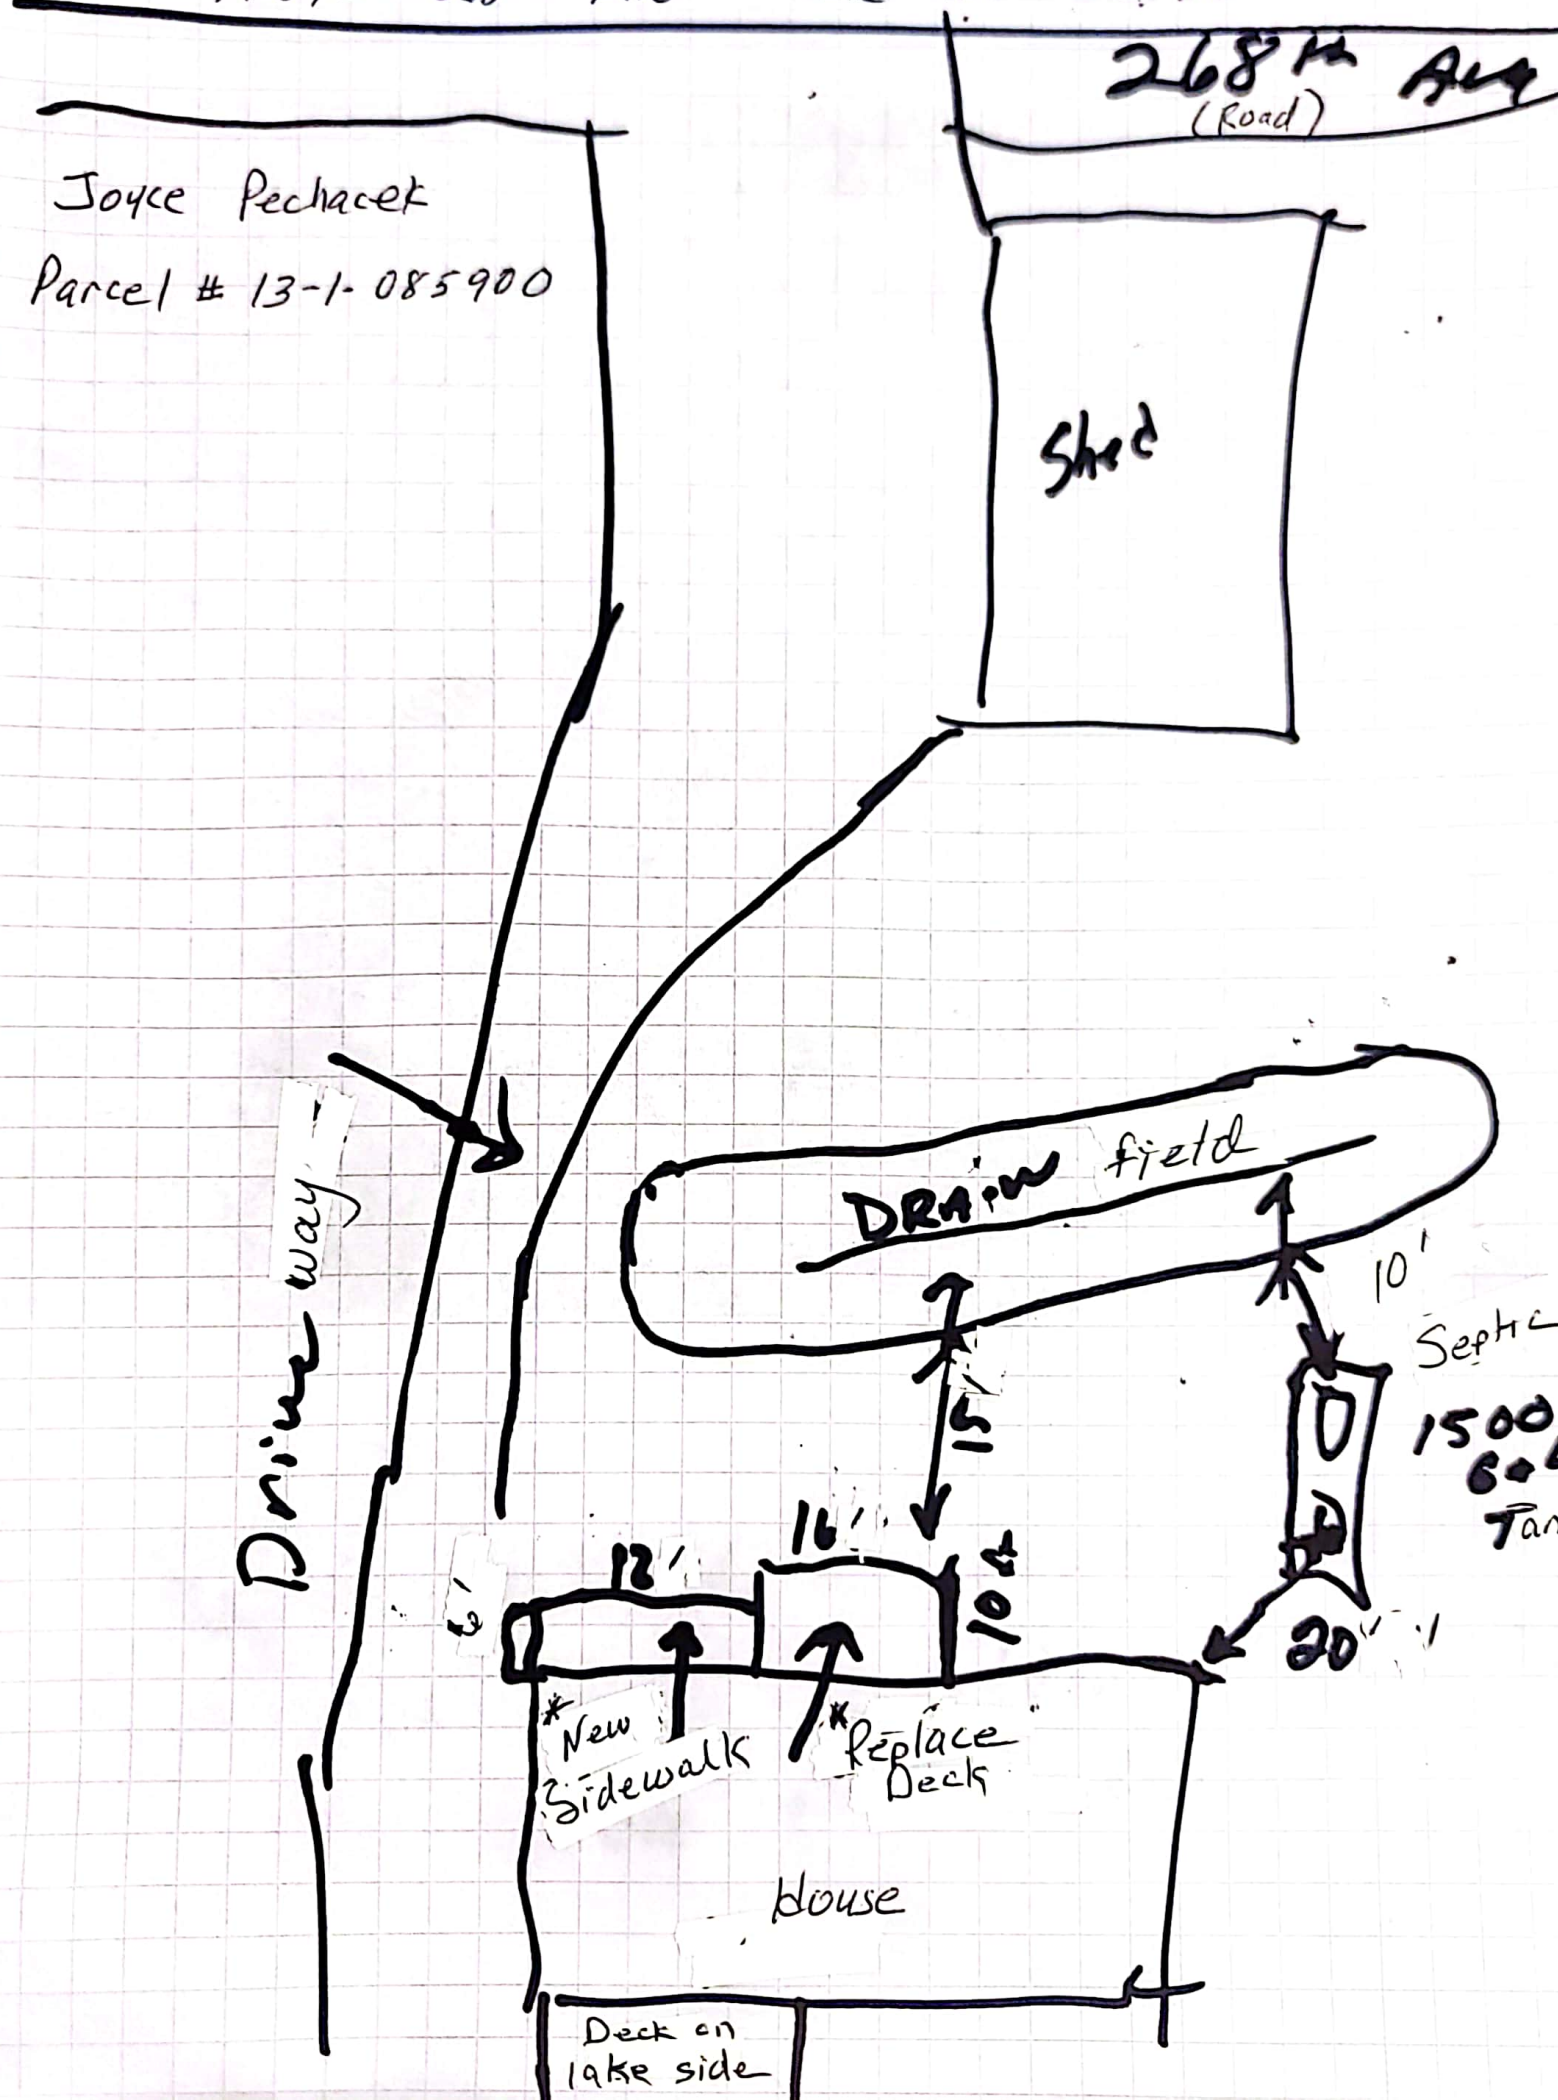 268th Ave
(Road)
Joyce Pechacek
Parcel # 13-1-085900
Shed
Drive way
DRAIN field
10'
Septic
1500
Gal
Tan
15'
16'
12'
6'
10 ft
20'
*New
Sidewalk
*Replace
Deck
House
Deck on
lake side